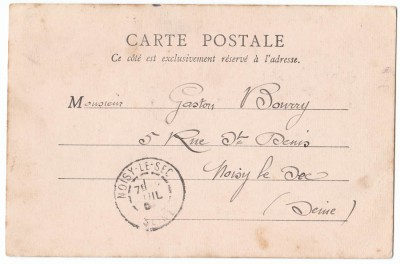 CARTE POSTALE
Ce côté est exclusivement réservé à l'adresse.
Monsieur Gaston Bourry
5 Rue St Denis
Noisy le Sec
(Seine)
NOISY-LE-SEC
SEINE